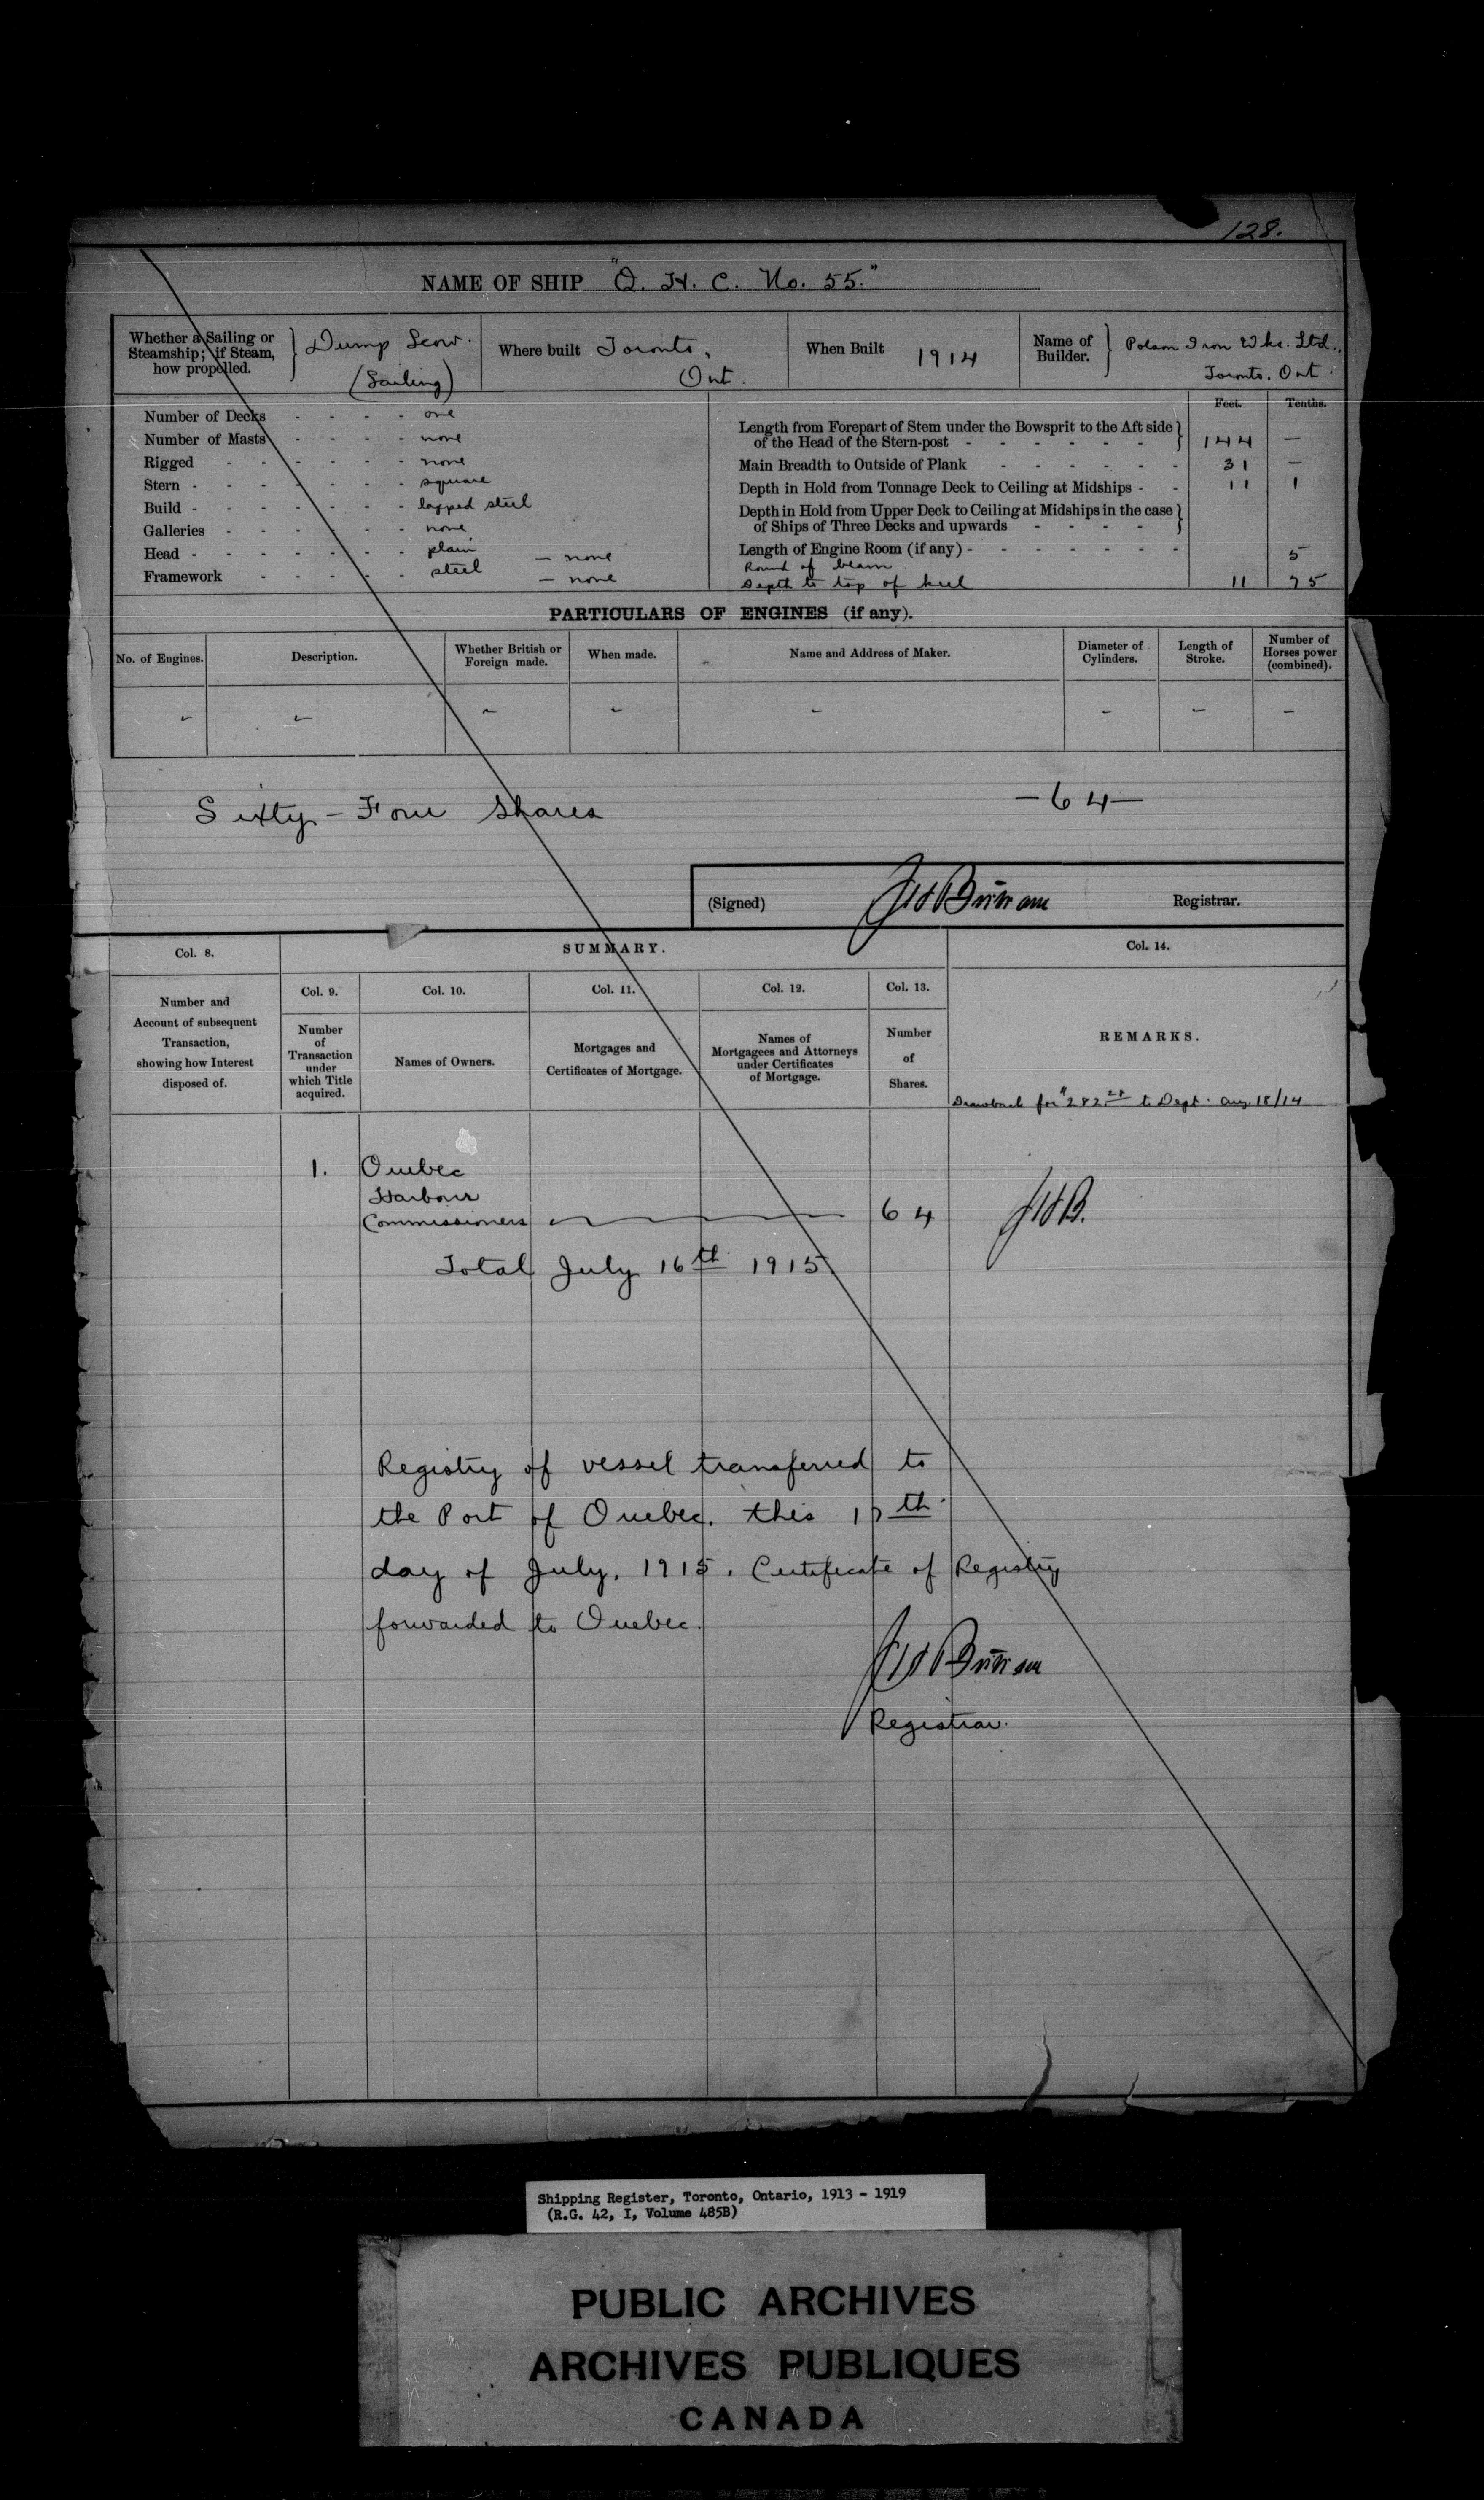 128.
NAME OF SHIP "Q. H. C. No. 55."
Whether a Sailing or
Steamship; if Steam,
how propelled.
Dump Scow.
(Sailing)
Where built Toronto,
Ont.
When Built 1914
Name of
Builder.
Polson Iron Wks. Ltd.,
Toronto. Ont.
Feet. Tenths.
Number of Decks - - - - one
Number of Masts - - - - none
Rigged - - - - - - none
Stern - - - - - - - square
Build - - - - - - - lapped steel
Galleries - - - - - - none
Head - - - - - - - plain — none
Framework - - - - - steel — none
Length from Forepart of Stem under the Bowsprit to the Aft side
of the Head of the Stern-post - - - - - - 144 —
Main Breadth to Outside of Plank - - - - - - 31 —
Depth in Hold from Tonnage Deck to Ceiling at Midships - - 11 1
Depth in Hold from Upper Deck to Ceiling at Midships in the case
of Ships of Three Decks and upwards - - - -
Length of Engine Room (if any) - - - - - - -
Round of beam 5
Depth to top of keel 11 75
PARTICULARS OF ENGINES (if any).
No. of Engines. Description. Whether British or
Foreign made. When made. Name and Address of Maker. Diameter of
Cylinders. Length of
Stroke. Number of
Horses power
(combined).
- - - - - - - -
Sixty-Four Shares —64—
(Signed) Registrar.
Col. 8. SUMMARY. Col. 14.
Col. 9. Col. 10. Col. 11. Col. 12. Col. 13.
Number and
Account of subsequent
Transaction,
showing how Interest
disposed of.
Number
of
Transaction
under
which Title
acquired.
Names of Owners.
Mortgages and
Certificates of Mortgage.
Names of
Mortgagees and Attorneys
under Certificates
of Mortgage.
Number
of
Shares.
REMARKS.
Drawback for to Dept. Aug. 18/14
1. Quebec
Harbour
Commissioners 64 JHB.
Total July 16th 1915
Registry of vessel transferred to
the Port of Quebec. this 17th
day of July, 1915. Certificate of Registry
forwarded to Quebec.
Registrar.
Shipping Register, Toronto, Ontario, 1913 - 1919
(R.G. 42, I, Volume 485B)
PUBLIC ARCHIVES
ARCHIVES PUBLIQUES
CANADA